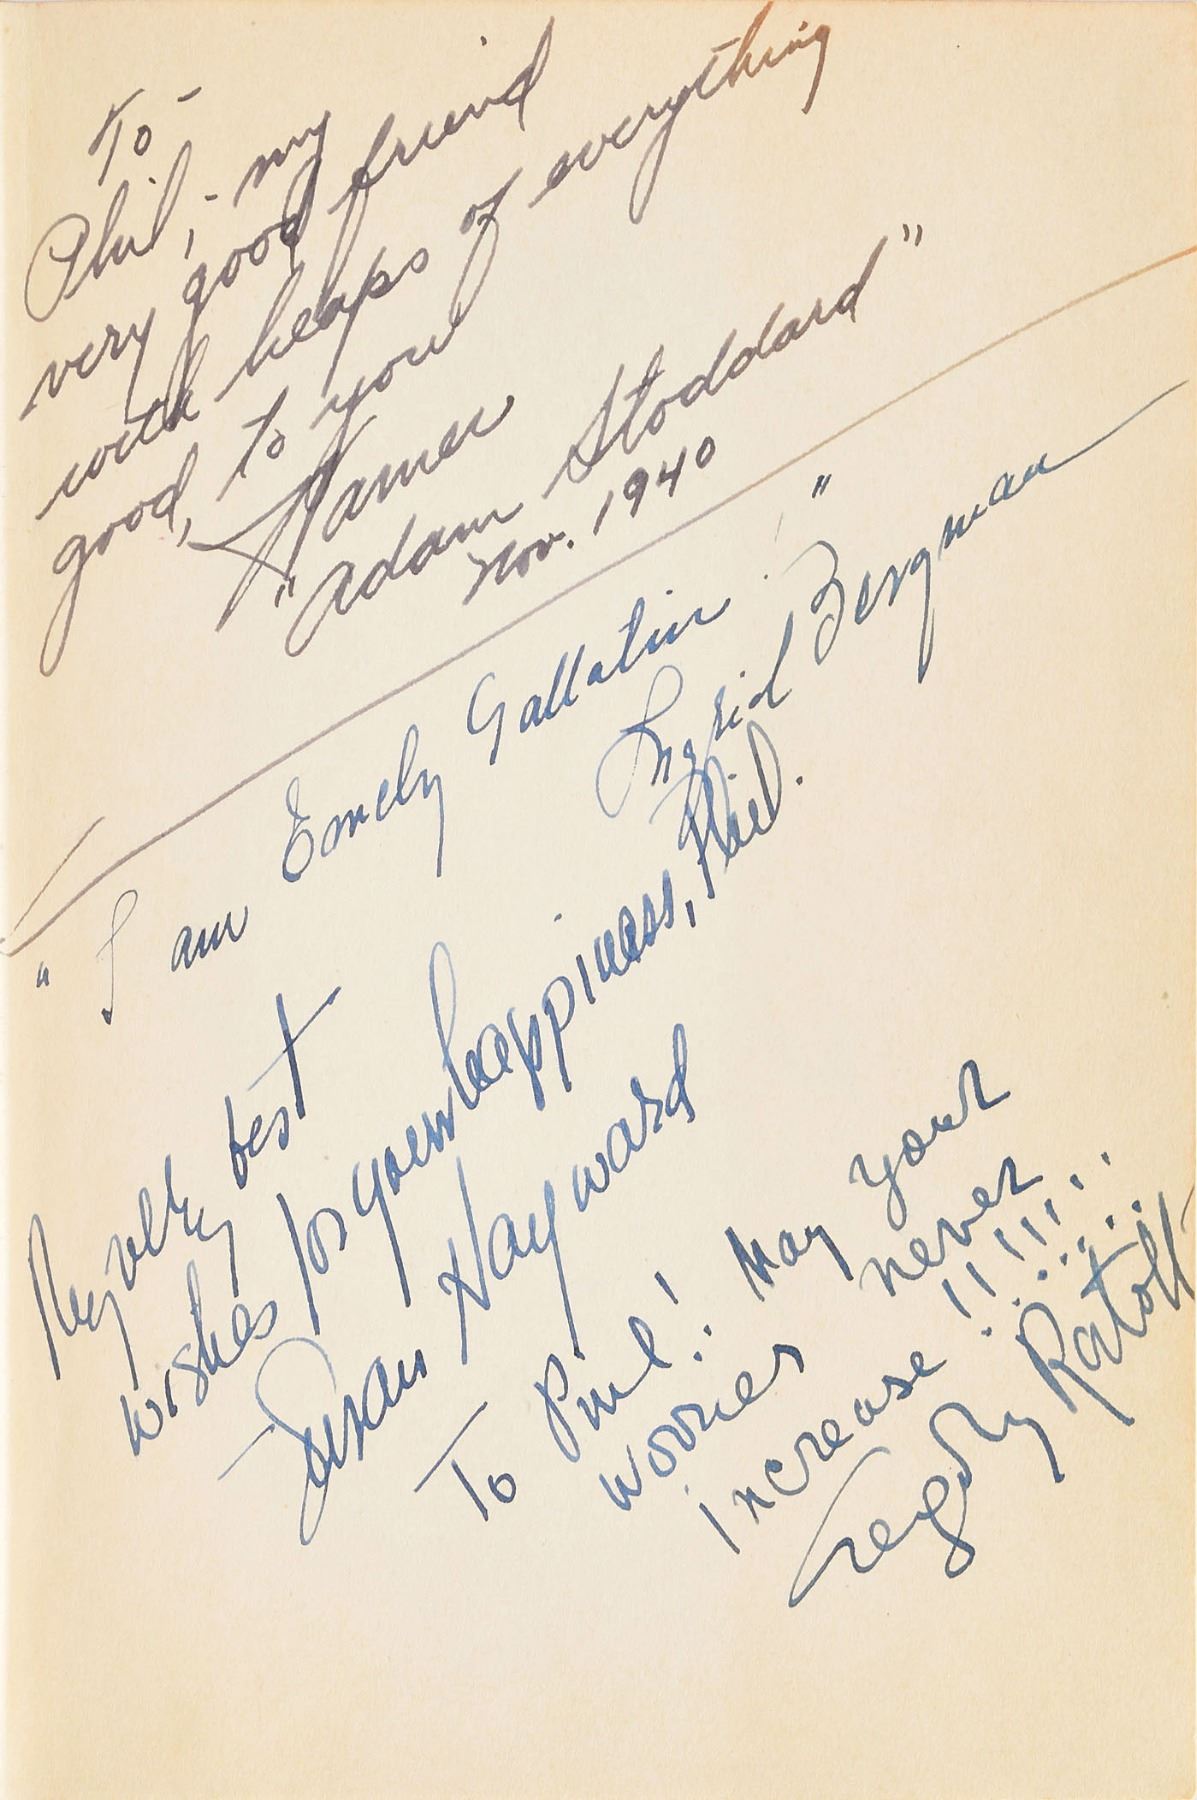 To -
Phil, - my
very good friend
with heaps of everything
good, to you
Warner
"Adam Stoddard"
Nov. 1940
"I am Emely Gallatin"
Ingrid Bergman
My very best
wishes for your happiness, Phil.
Susan Hayward
To Phil! May your
worries never
increase !!!!!!
Gregory Ratoff